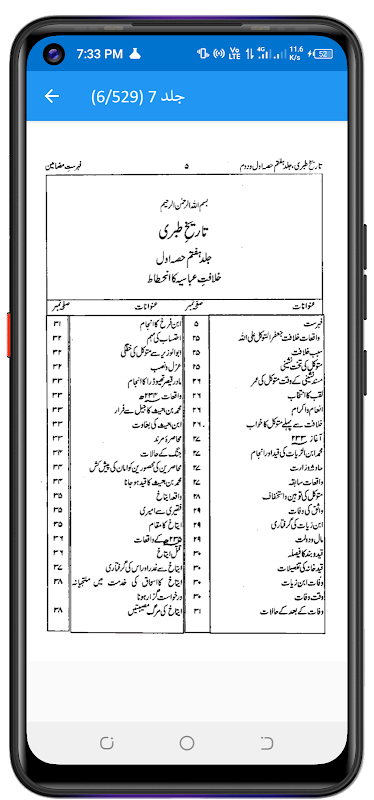 7:33 PM
Vo LTE 4G 11.6 K/s 52
جلد 7 (6/529)
تاریخ طبری، جلد ہفتم حصہ اول و دوم ۵ فہرست مضامین
بسم اللہ الرحمٰن الرحیم
تاریخ طبری
جلد ہفتم حصہ اول
خلافت عباسیہ کا انحطاط
عنوانات صفحہ نمبر
فہرست ۵
واقعات خلافت جعفر المتوکل علی اللہ ۲۵
سبب خلافت ۲۵
متوکل کی تخت نشینی ۲۵
مسند نشینی کے وقت متوکل کی عمر ۲۶
لقب کا انتخاب ۲۶
انعام واکرام ۲۶
خلافت سے پہلے متوکل کا خواب ۲۶
آغاز ۲۳۳ ۲۷
محمد ابن الزیات کی قید اور انجام ۲۷
حادثہ وزارت ۲۷
واقعات سابقہ ۲۷
متوکل کی توہین و استخفاف ۲۸
واثق کی وفات ۲۹
ابن زیات کی گرفتاری ۲۹
مال و دولت ۲۹
قید و بند کا فیصلہ ۳۰
قید خانہ کی تفصیلات ۳۰
وفات ابن زیات ۳۰
وقت وفات ۳۰
وفات کے بعد کے حالات ۳۱
عنوانات صفحہ نمبر
ابن فرخ کا انجام ۳۱
احتساب کی مہم ۳۲
ابوالوزیر سے متوکل کی خفگی ۳۲
عزل و نصب ۳۲
مادر قیصر تھیوڈرا کا انجام ۳۳
واقعات ۲۳۴ھ ۳۳
محمد بن البعیث کا جیل سے فرار ۳۳
ابن البعیث کی بغاوت ۳۳
محاصرہ مرند ۳۳
جنگ کے حالات ۳۴
محاصرین کی محصورین کو امان کی پیش کش ۳۴
محمد بن البعیث کا قید ہو جانا ۳۴
واقعہ ایتاخ ۳۵
فقیری سے امیری ۳۵
ایتاخ کا مقام ۳۵
۲۳۵ھ کے واقعات ۳۶
قتل ایتاخ ۳۶
ایتاخ سے غدر اور اس کی گرفتاری ۳۷
ایتاخ کا اسحاق کی خدمت میں ملتجیانہ ۳۸
درخواست گزار ہونا
ایتاخ کی مرگ مصیبتیں ۳۸